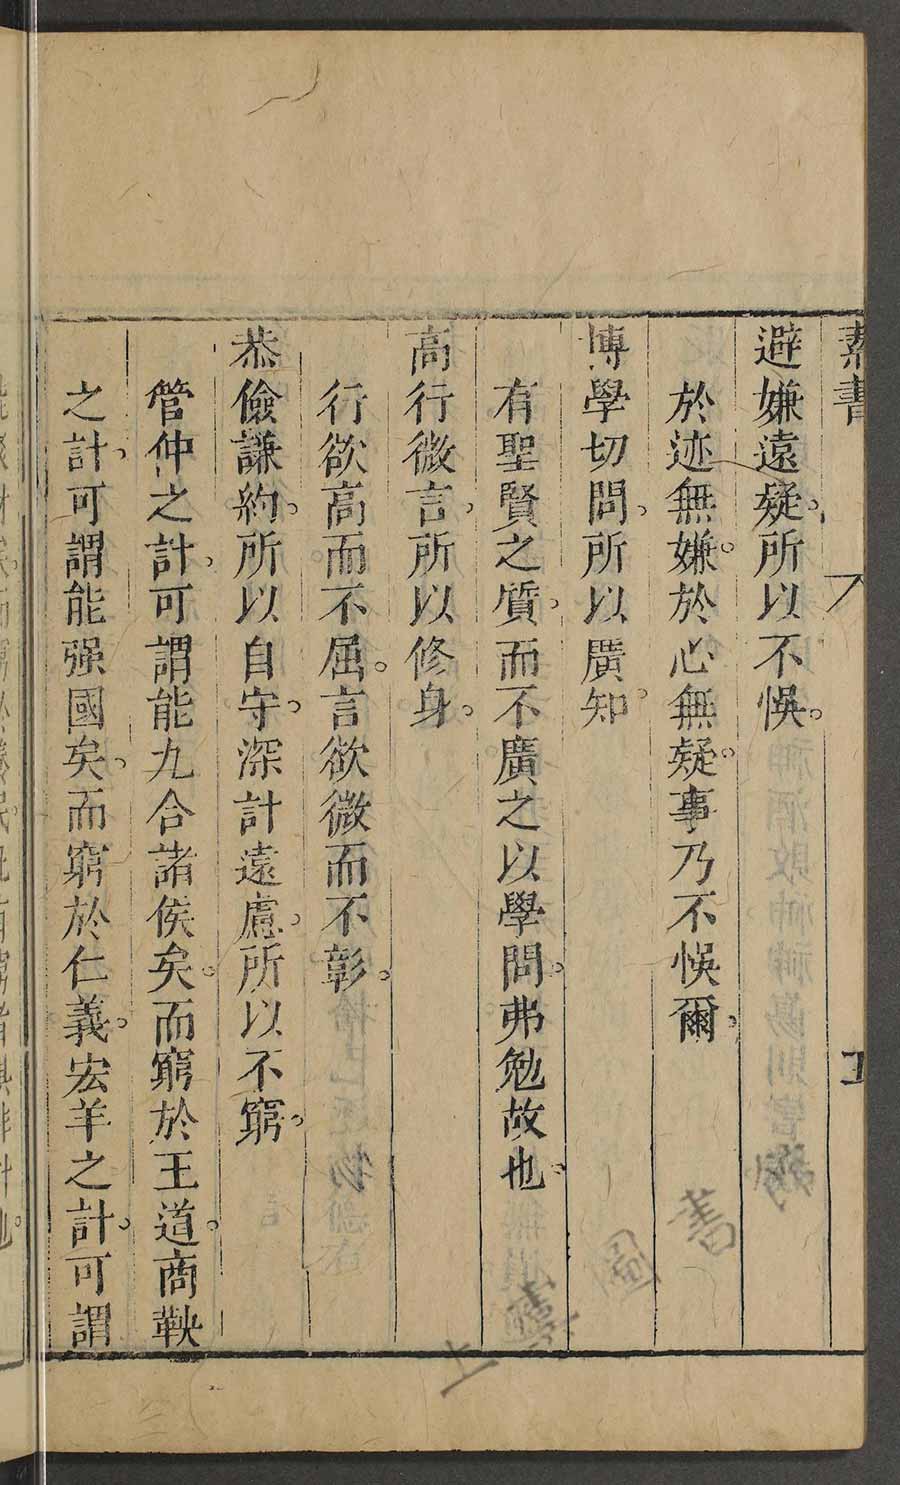 素書
避嫌遠疑。所以不悞。
於迹無嫌。於心無疑。事乃不悞爾。
博學切問。所以廣知。
有聖賢之質。而不廣之以學問。弗勉故也。
高行微言。所以修身。
行欲高而不屈。言欲微而不彰。
恭儉謙約。所以自守。深計遠慮。所以不窮。
管仲之計。可謂能九合諸侯矣。而窮於王道。商鞅
之計。可謂能强國矣。而窮於仁義。宏羊之計。可謂